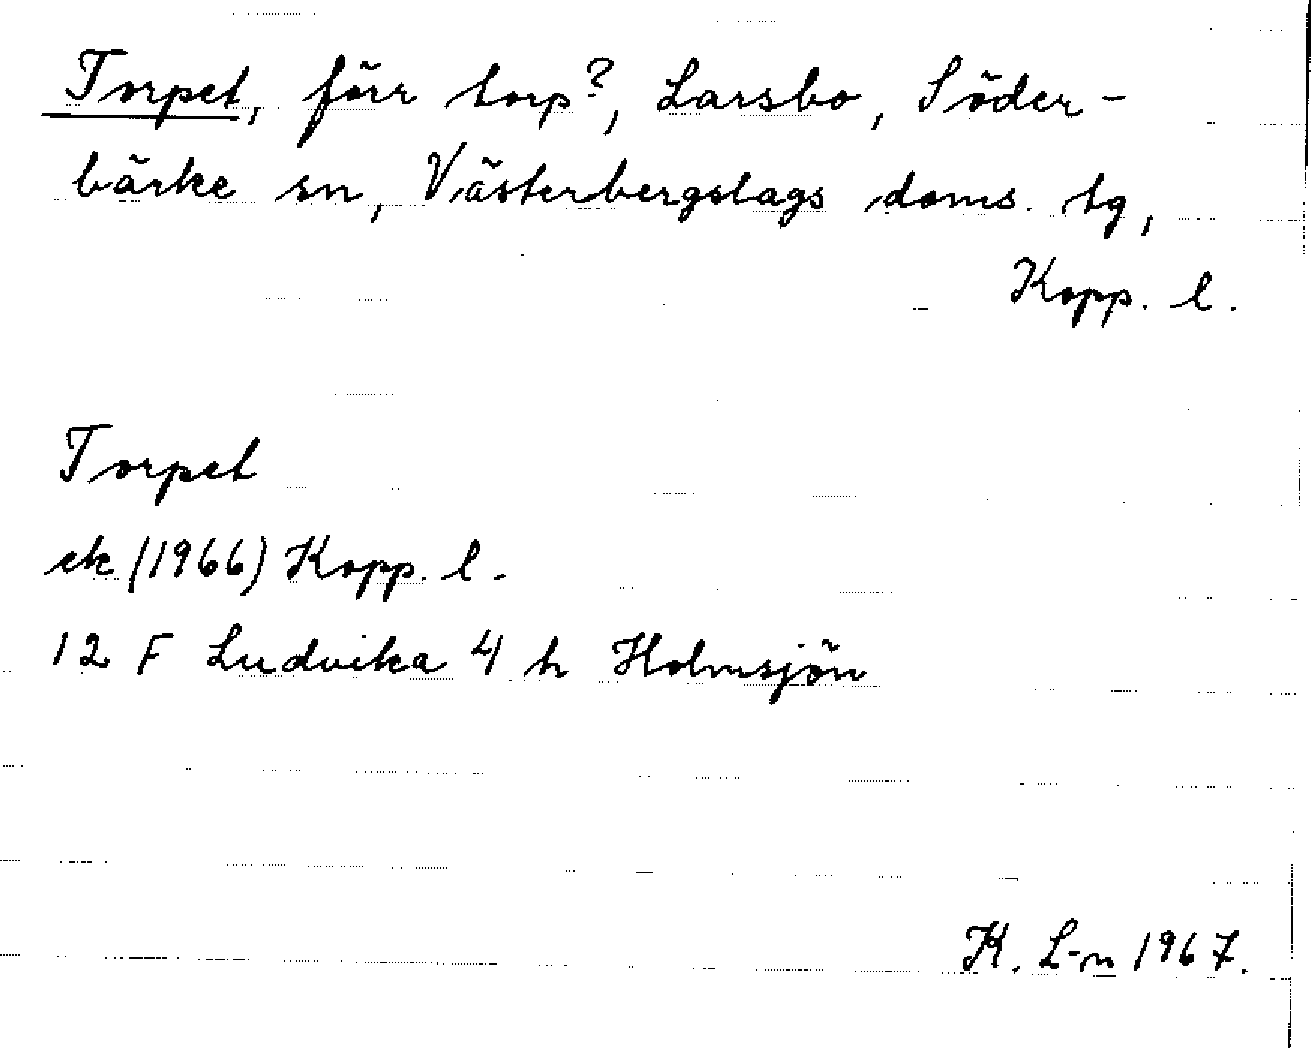 Torpet, förr torp?, Larsbo, Söder-
bärke sn, Västerbergslags doms. tg,
Kopp. l.
Torpet
ek (1966) Kopp. l.
12 F Ludvika 4 h Holmsjön
K. L-n 1967.